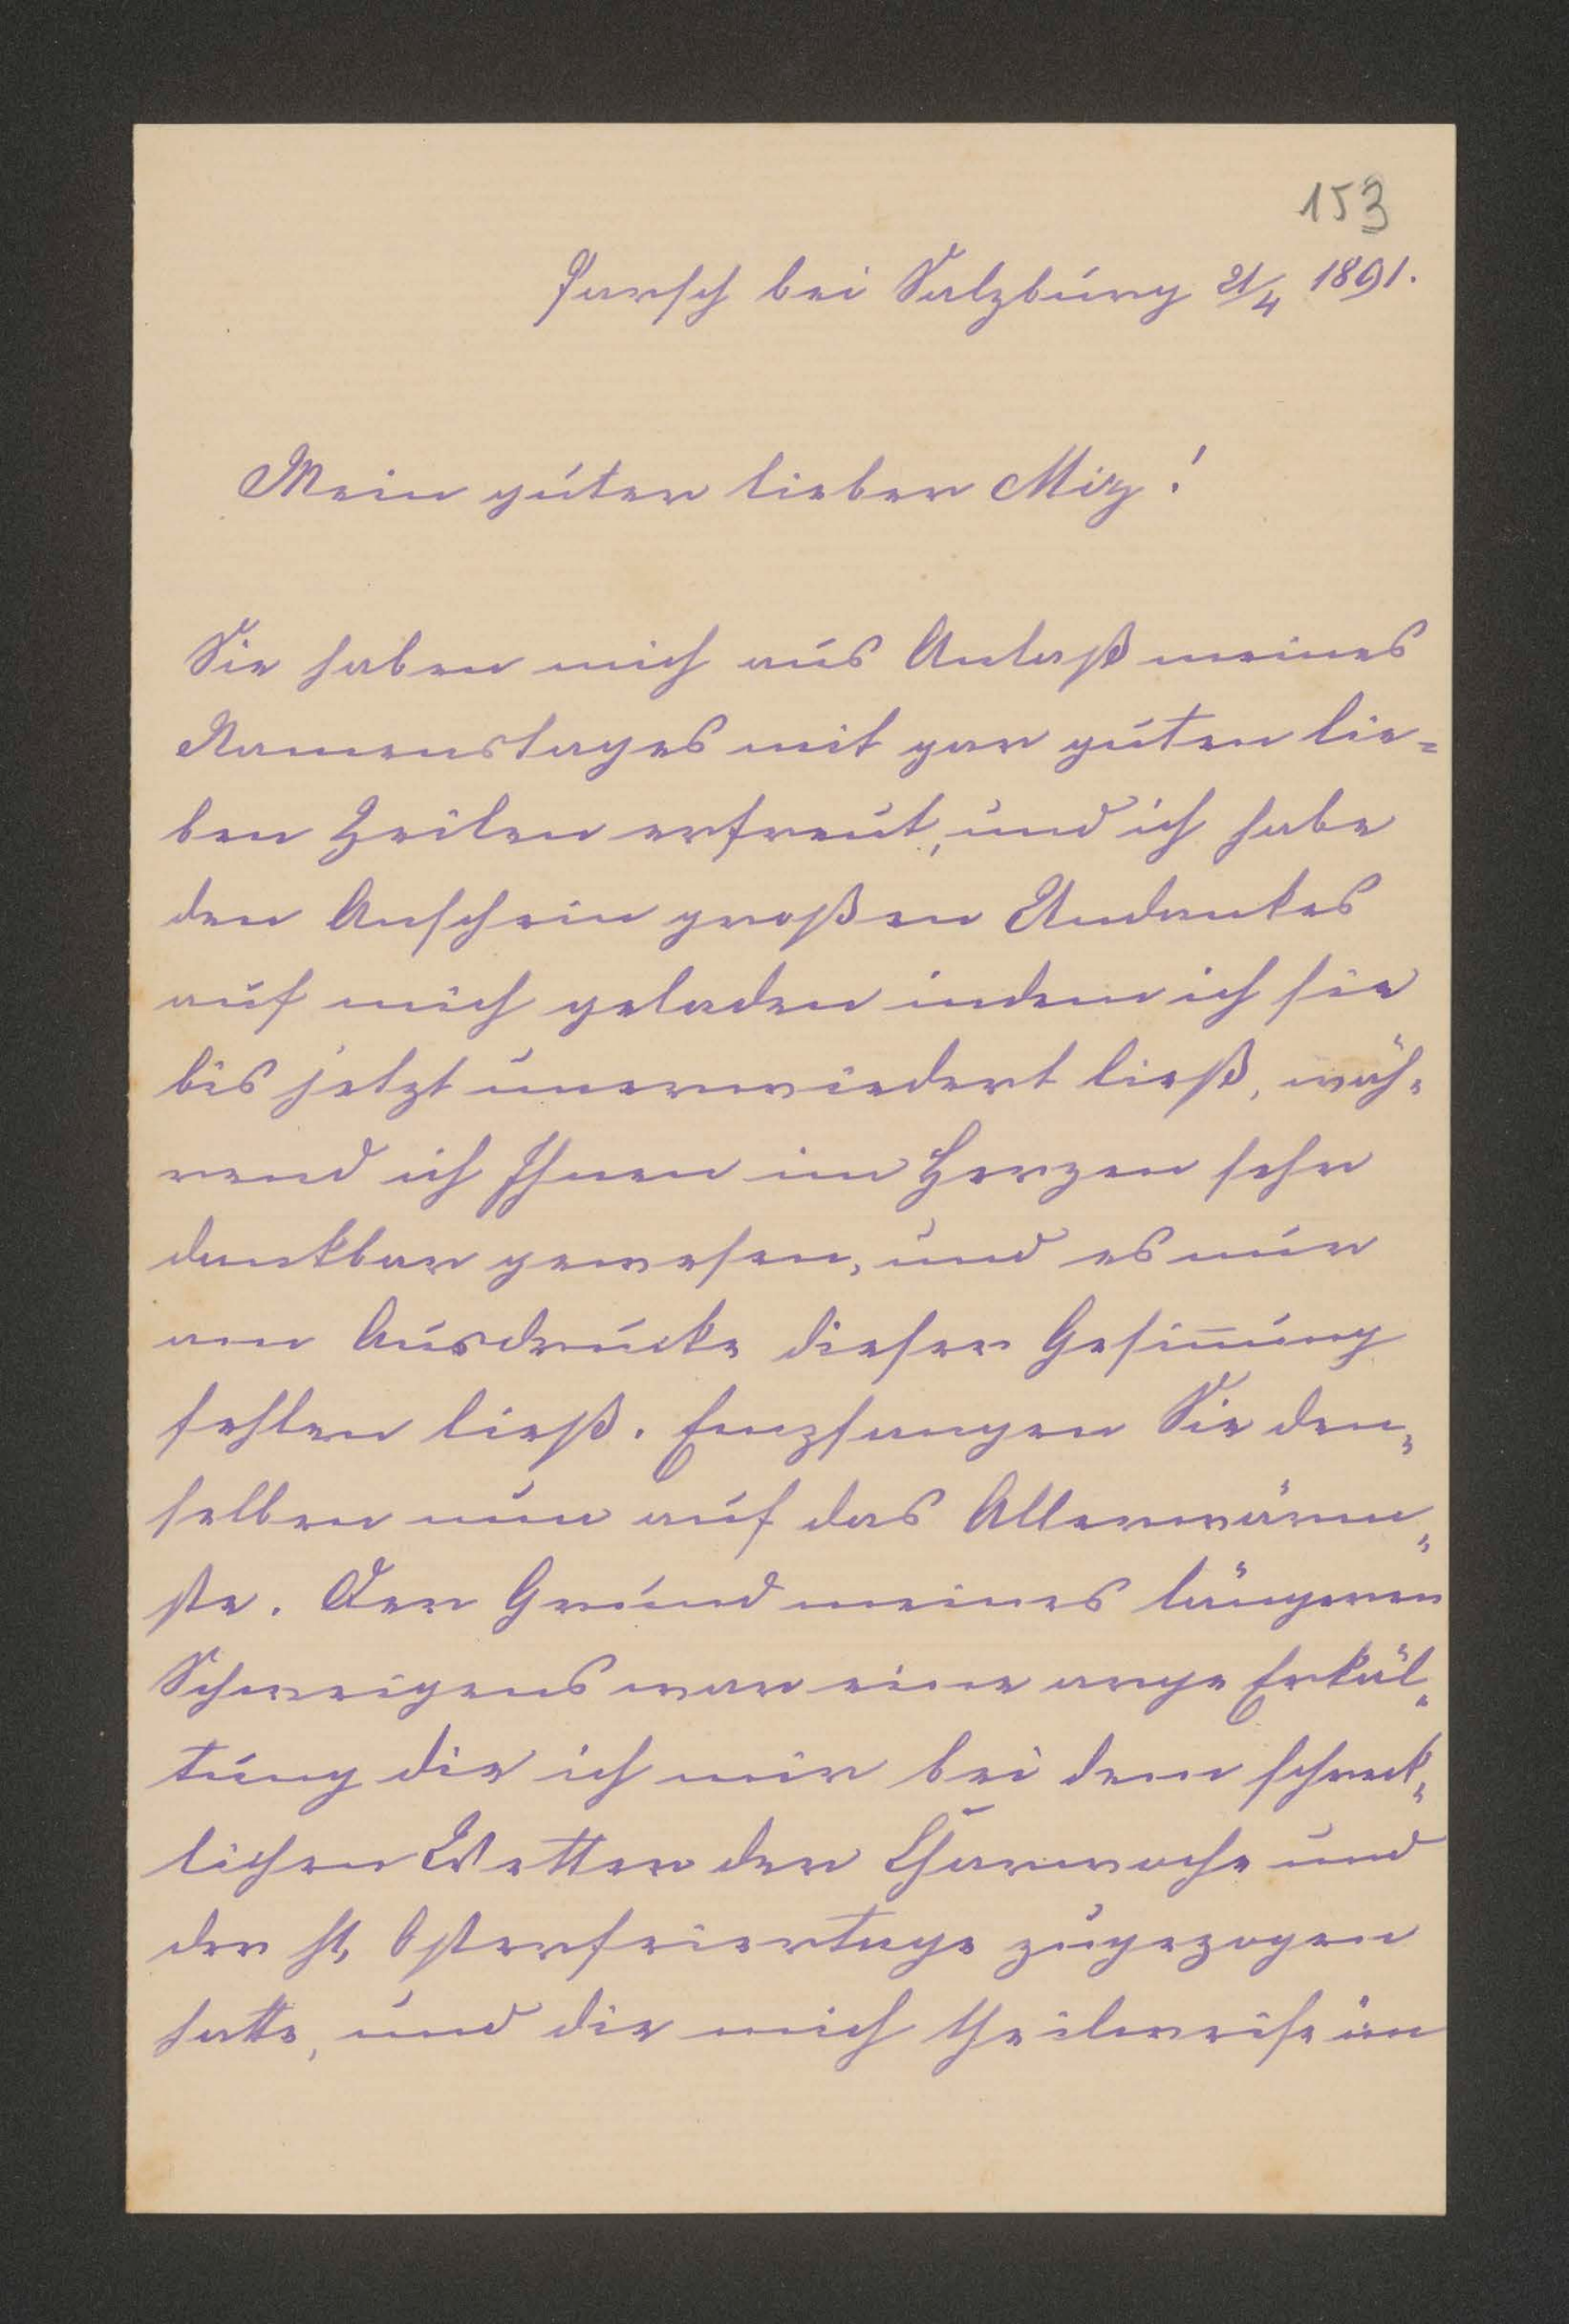 153
Parsch bei Salzburg 21/4 1891.
Mein guter lieber Miz!
Sie haben mich aus Anlaß meines
Namenstages mit gar guten lie=
ben Zeilen erfreut, und ich habe
den Anschein großen Undankes
auf mich geladen indem ich sie
bis jetzt unerwiedert ließ, wäh=
rend ich Ihnen im Herzen sehr
dankbar gewesen, und es nur
am Ausdrucke dieser Gesin̅ung
fehlen ließ. Empfangen Sie den=
selben nun auf das Allerwärm=
ste. Der Grund meines längeren
Schweigens war eine arge Erkäl=
tung die ich mir bei dem schreck=
lichen Wetter der Charwoche und
der hl. Osterfeiertage zugezogen
hatte, und die mich theilweise im